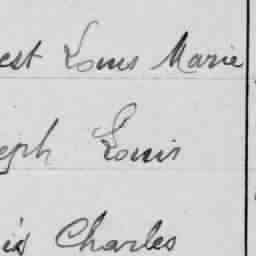 est Louis Marie
eph Louis
is Charles